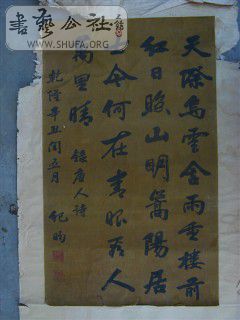 書藝公社
WWW.SHUFA.ORG
天際烏雲含雨重樓前
紅日照山明嵩陽居
士今何在青眼看人
萬里晴 錄唐人詩
乾隆辛丑閏五月 紀昀